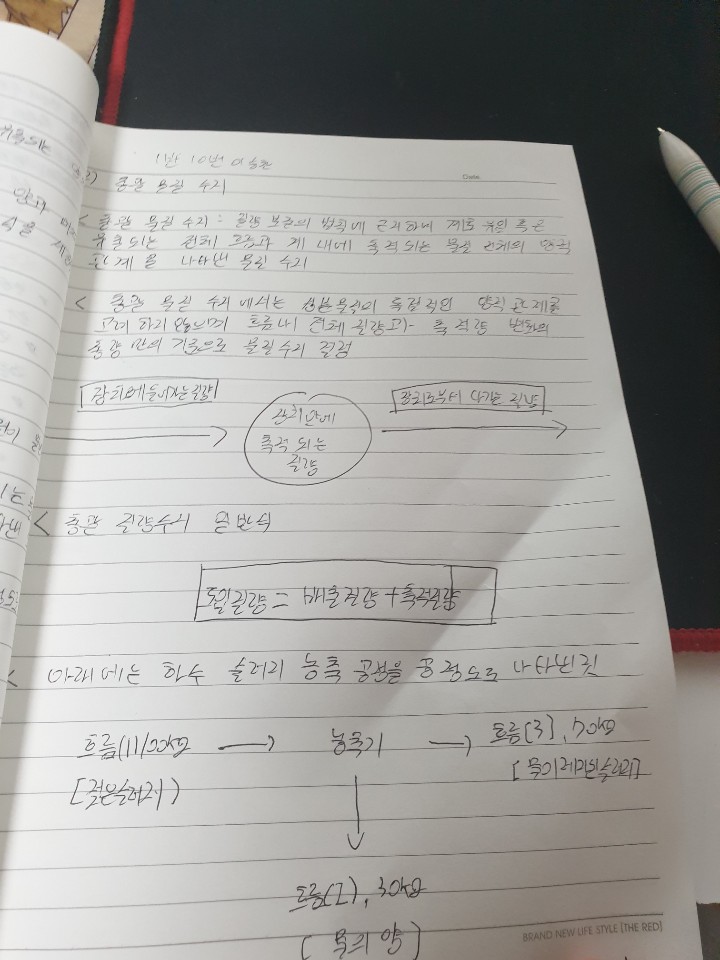 1반 10번
Date.
총괄 물질 수지
< 총괄 물질 수지 : 질량 보존의 법칙에 근거하여 계로 유입 혹은
유출되는 전체 흐름과 계 내에 축적되는 물질 전체의 양적
관계를 나타낸 물질 수지
< 총괄 물질 수지에서는 성분물질의 독립적인 양적 관계를
고려하지 않으며 흐름내 전체 질량과 축적량 변화의
총량 만의 기준으로 물질수지 결정
장치에 들어가는 질량
장치안에
축적 되는
질량
장치로부터 나가는 질량
< 총괄 질량수지 일반식
도입질량 = 배출질량 + 축적질량
< 아래에는 하수 슬러리 농축 공정을 공정도로 나타낸 것
흐름(1) 100kg
농축기
흐름[3], 70kg
[젖은슬러리)
[물이 제거된 슬러리]
흐름(2), 30kg
[물의 양]
BRAND NEW LIFE STYLE [THE RED]